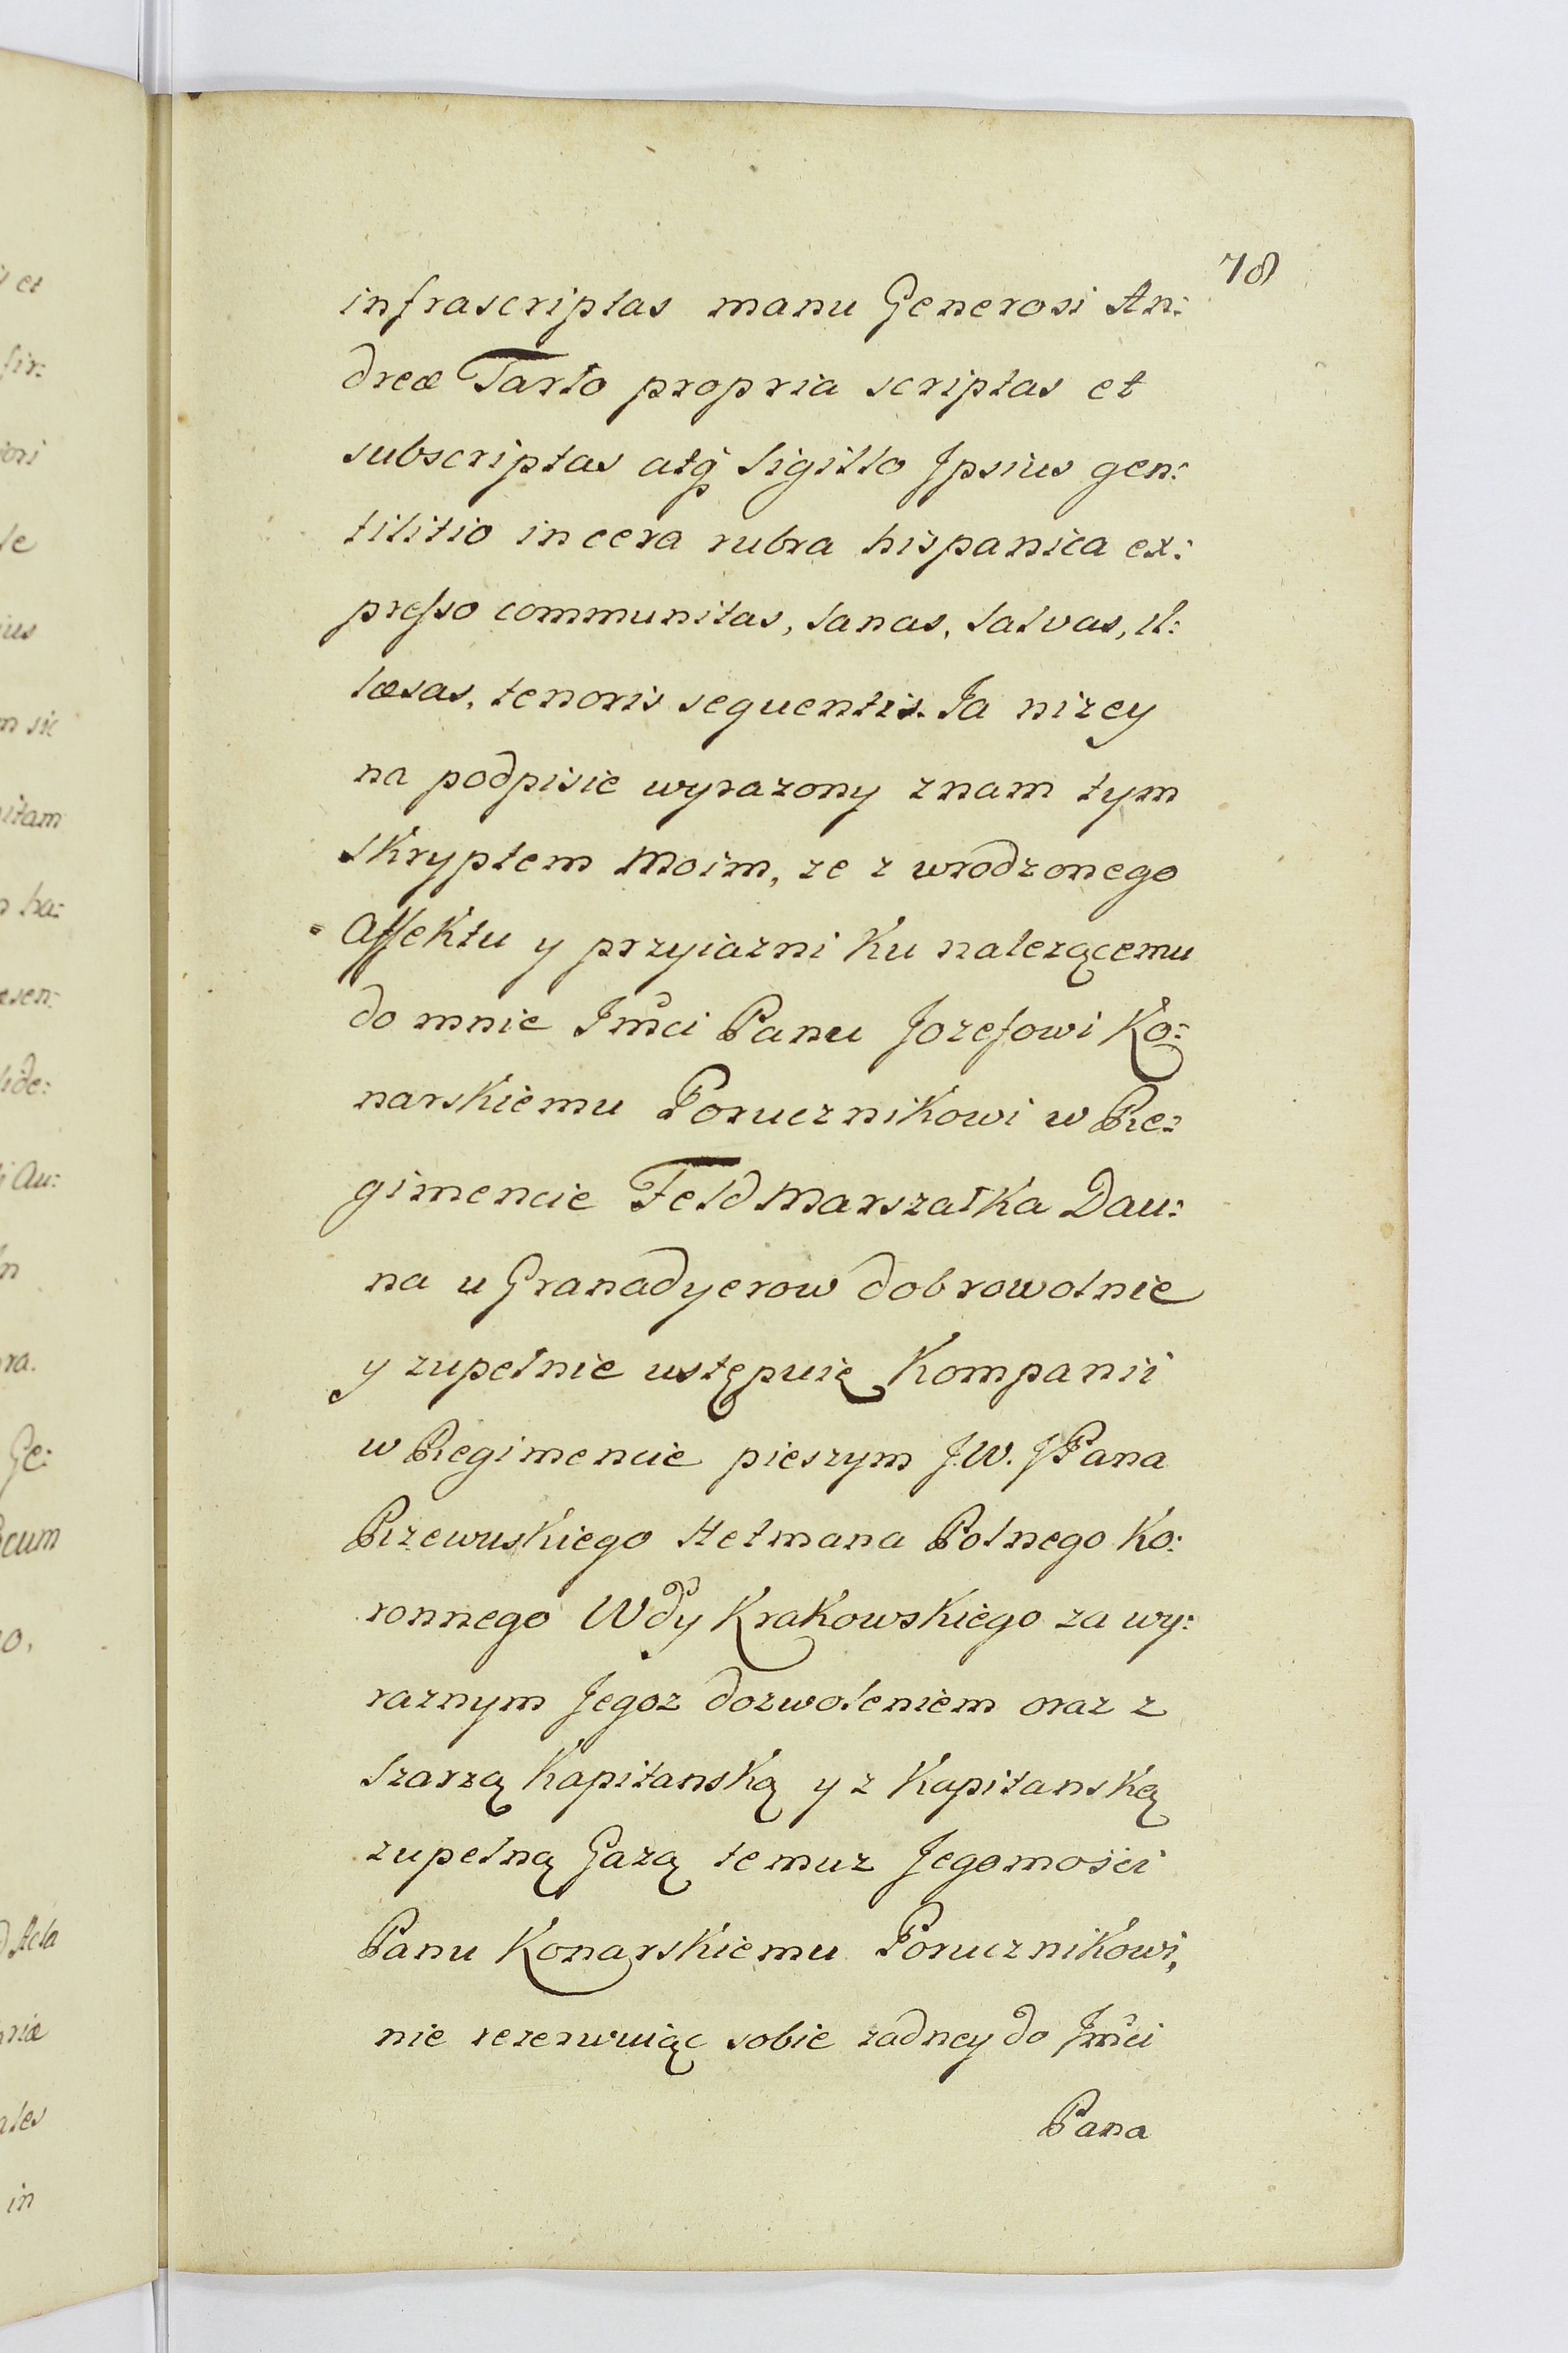 78
infrascriptas manu Generosi An:
dreæ Tarło propria scriptas et
subscriptas atq́ Sigillo Ipsius gen:
tilitio in cera rubra hispanica ex:
presso communitas, Sanas, Salvas, il:
læsas, tenoris sequentis. Ja nizey
na podpisie wyrazony znam tym
Skryptem Moim, ze z wrodzonego
Affektu y przyiazni Ku nalezącemu
do mnie Jm̃ci Panu Jozefowi Ko:
narskiemu Porucznikowi w Re:
gimencie Feld Marszałka Dau:
na u Granadyerow dobrowolnie
y zupełnie ustępuię Kompanii
w Regimencie pieszym J.W. JPana
Rzewuskiego Hetmana Polnego Ko:
ronnego Wdy Krakowskiego za wy:
raznym Jegoz dozwoleniem oraz z
Szarzą Kapitanską y z Kapitanską
zupełną Gazą temuz Jegomości
Panu Konarskiemu Porucznikowi,
nie rezerwuiąc sobie zadney do Jm̃ci
Pana
et
fir:
iori
le
ius
m sic
itam
ha:
æsen:
ide:
i Au:
ra.
Ge:
cum
o,
Acta
riæ
ales
in